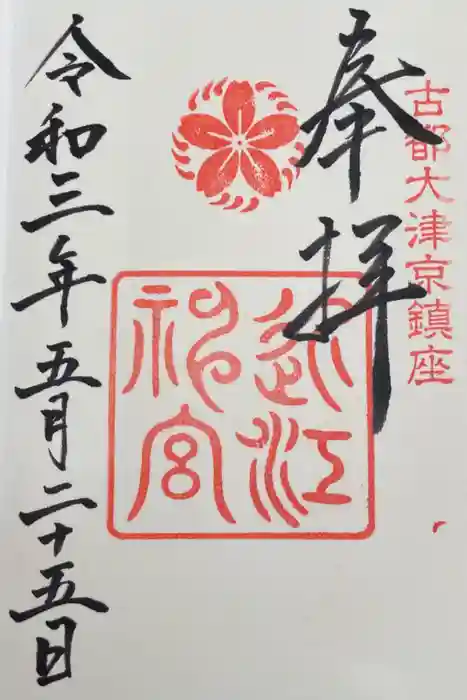 古都大津京鎮座
奉拝
近江神宮
令和三年五月二十五日